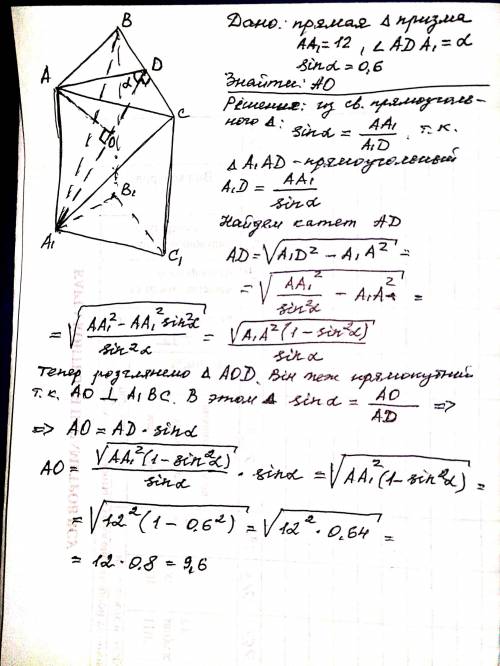 B
D
A
α
C
O
B₁
A₁
C₁
Дано: прямая Δ призма
AA₁=12, ∠ADA₁=α
sinα=0,6
Знайти: AO
Решение: из св. прямоуголь-
ного Δ: sinα = AA₁/A₁D, т.к.
Δ A₁AD - прямоугольный
A₁D = AA₁/sinα
Найдем катет AD
AD = √(A₁D² - A₁A²) =
= √(AA₁²/sin²α - A₁A²) =
= √((AA₁² - AA₁² sin²α)/sin²α) = √(A₁A²(1-sin²α))/sinα
Тепер розглянемо Δ AOD. Він теж прямокутний
т.к. AO ⊥ A₁BC. В этом Δ sinα = AO/AD =>
=> AO = AD · sinα
AO = √(AA₁²(1-sin²α))/sinα · sinα = √(AA₁²(1-sin²α)) =
= √(12²(1-0,6²)) = √(12² · 0,64) =
= 12 · 0.8 = 9,6